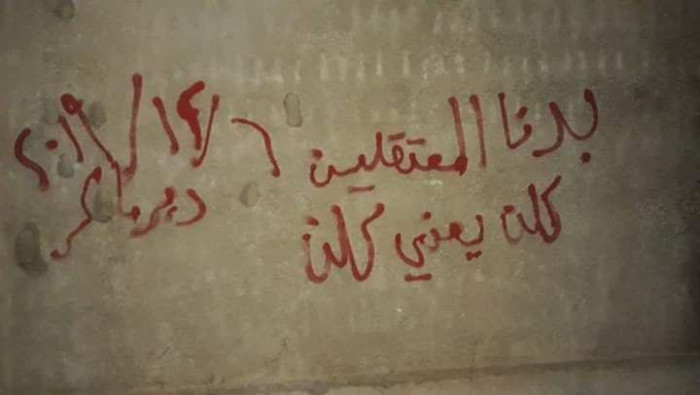 بدنا المعتقلين
كلن يعني كلن
٦/١٤/٢٠١٩
ديرماكر